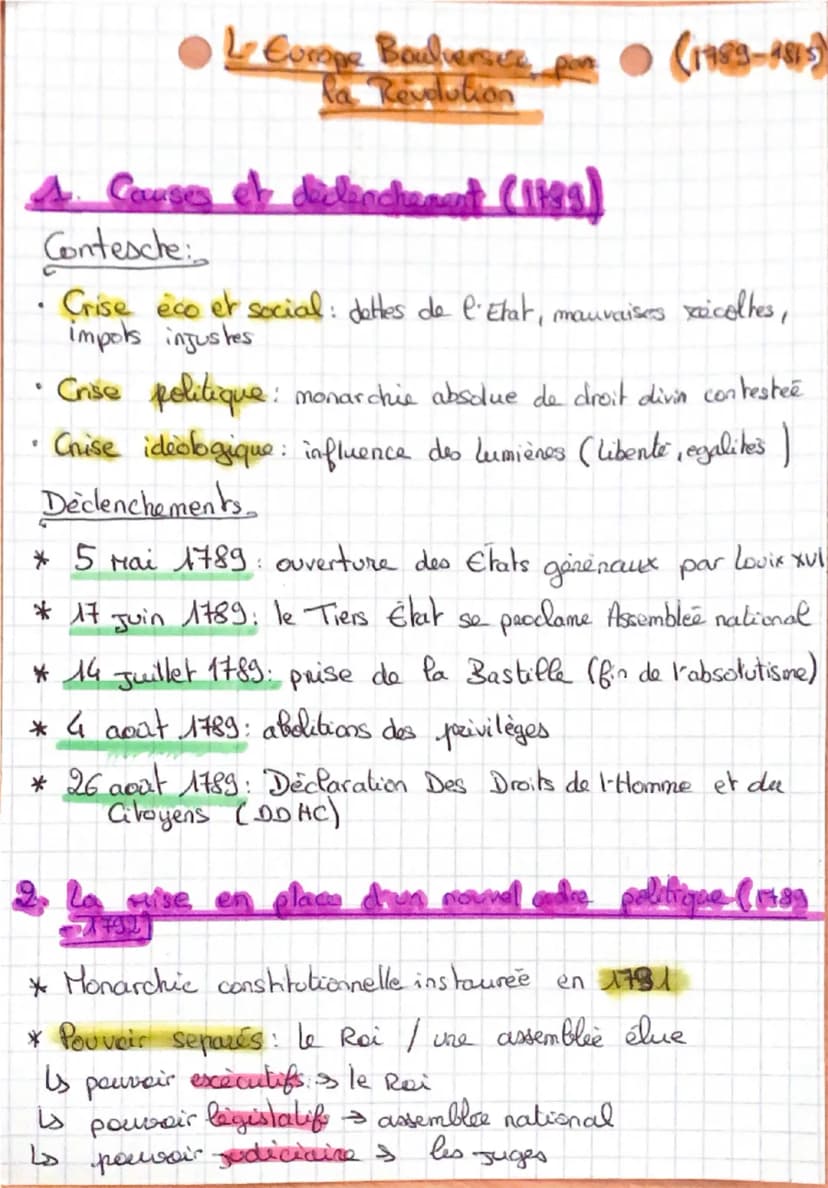 L'Europe Bouleversée par (1789-1815)
la Révolution
1. Causes et déclenchement (1789)
Contesche:
• Crise éco et social : dettes de l'Etat, mauvaises récoltes,
impots injustes
• Crise politique : monarchie absolue de droit divin contesteé
• Crise idéologique : influence des Lumières (liberté, egalités)
Déclenchements
* 5 Mai 1789 : ouverture des États généraux par Louis XVI
* 17 Juin 1789 : le Tiers État se proclame Assembleé national
* 14 Juillet 1789 : prise de la Bastille (fin de l'absolutisme)
* 4 août 1789 : abolitions des privilèges
* 26 août 1789 : Déclaration Des Droits de l'Homme et du
Citoyens (DDHC)
2. La mise en place d'un nouvel ordre politique (1789
-1792)
* Monarchie constitutionnelle instaureé en 1791
* Pouvoir separés : le Roi / une assembleé élue
↳ pouvoir exécutifs → le Roi
↳ pouvoir législatifs → assemblée national
↳ pouvoir judiciaire → les juges